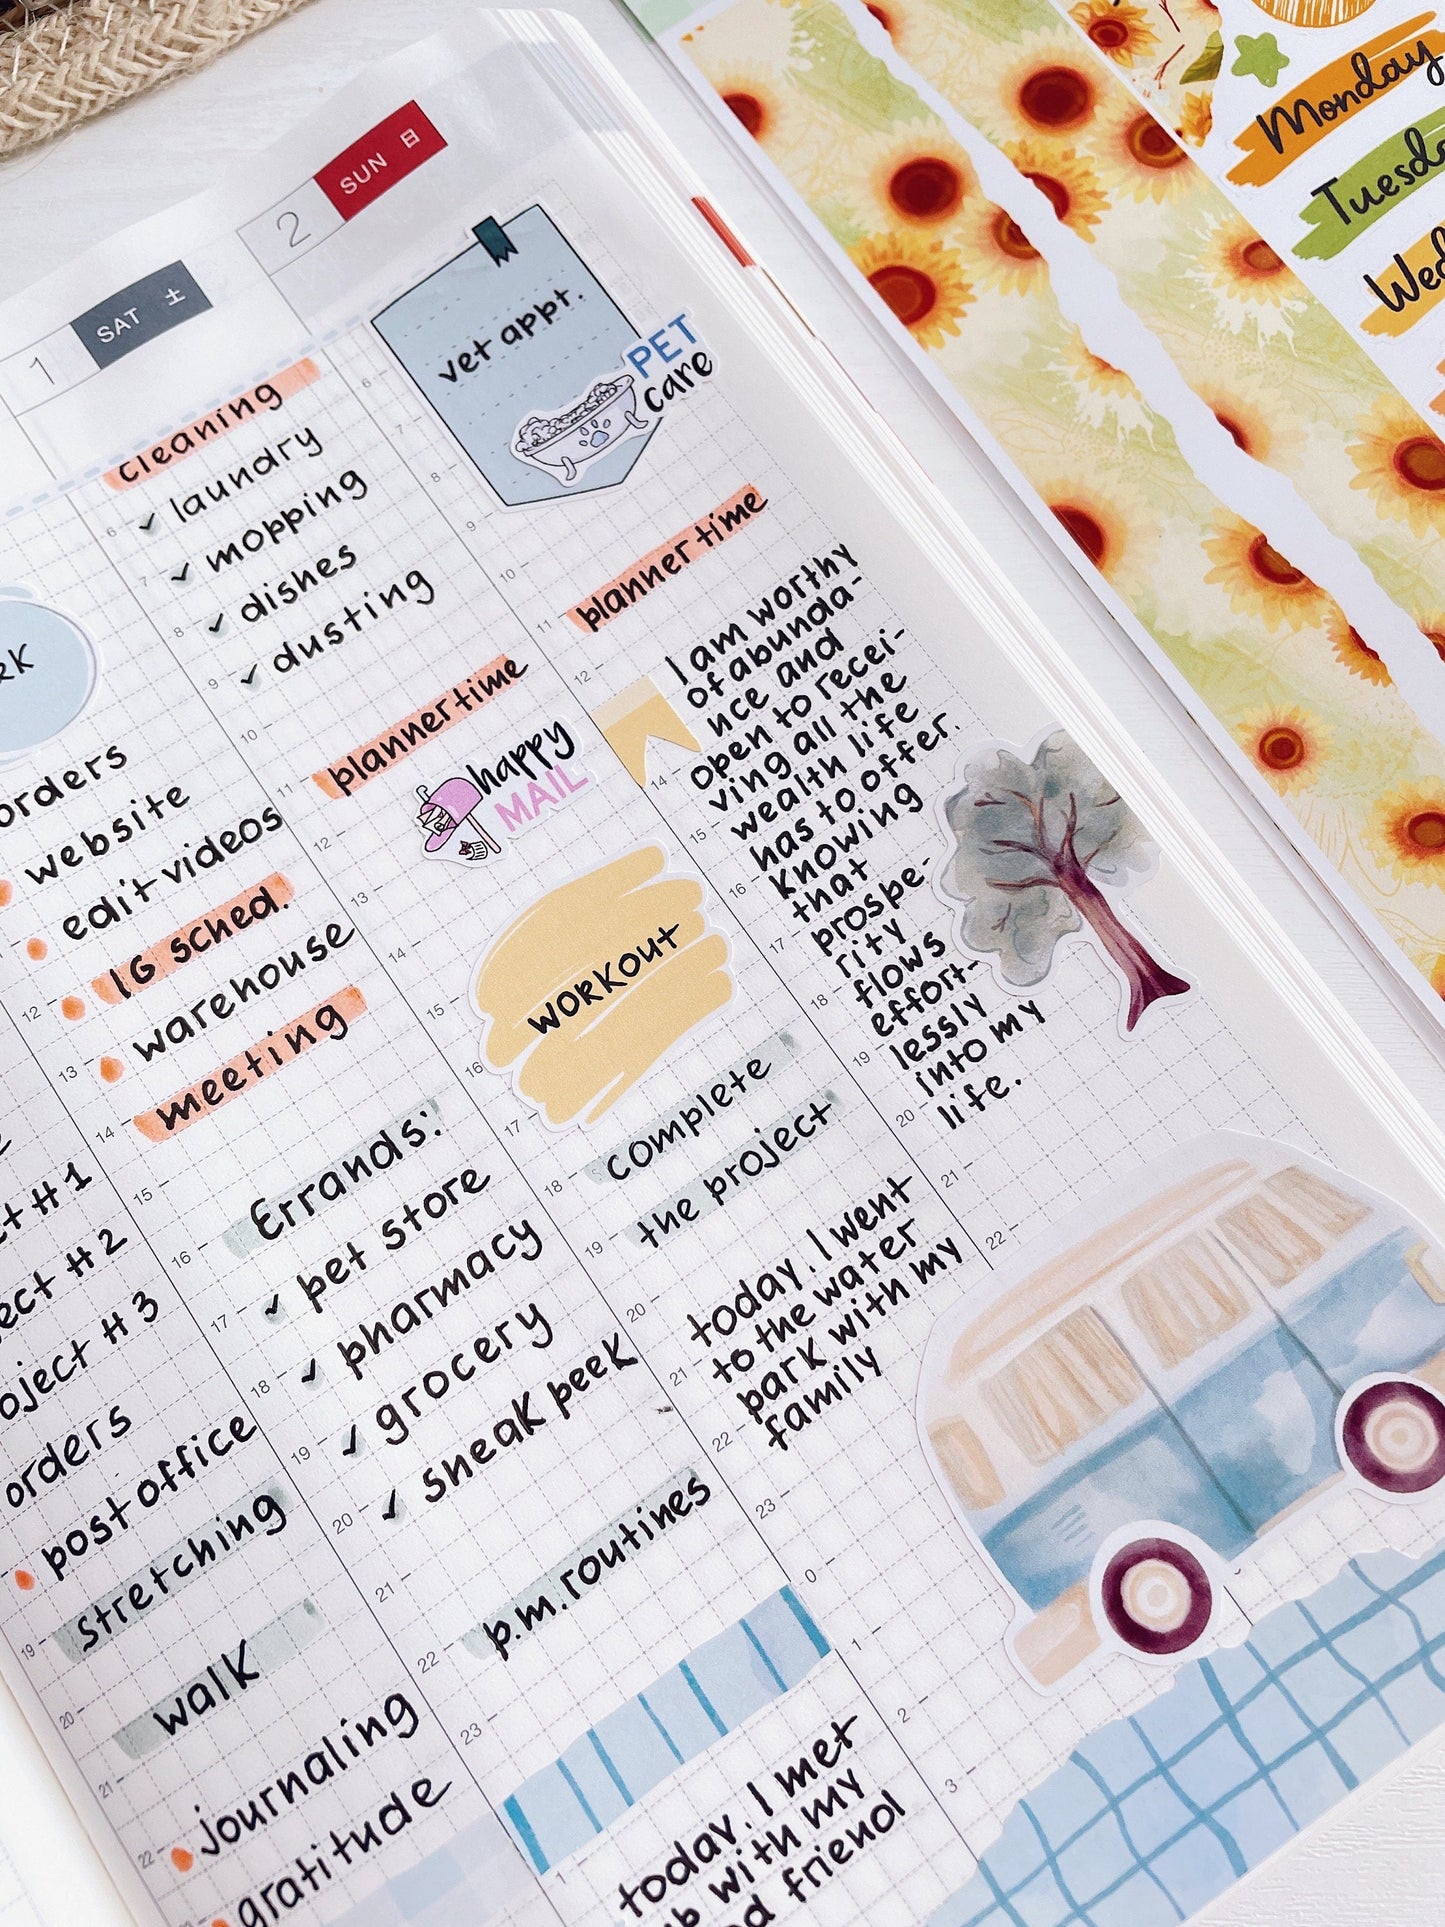 1
SAT 土
2
SUN 日
orders
website
edit videos
IG sched.
warehouse
meeting
# 1
# 2
# 3
orders
post office
stretching
walk
journaling
gratitude
cleaning
✓ laundry
✓ mopping
✓ dishes
✓ dusting
planner time
happy
MAIL
workout
Errands:
✓ pet store
✓ pharmacy
✓ grocery
✓ sneak peek
p.m. routines
vet appt.
PET
care
planner time
complete
the project
today, I went
to the water
park with my
family
today, I met
with my
friend
I am worthy
of abunda-
nce and
open to recei-
ving all the
wealth life
has to offer.
knowing
that
prospe-
rity
flows
effort-
lessly
into my
life.
6
7
8
9
10
11
12
13
14
15
16
17
18
19
20
21
22
23
0
1
2
3
Monday
Tuesd
Wed